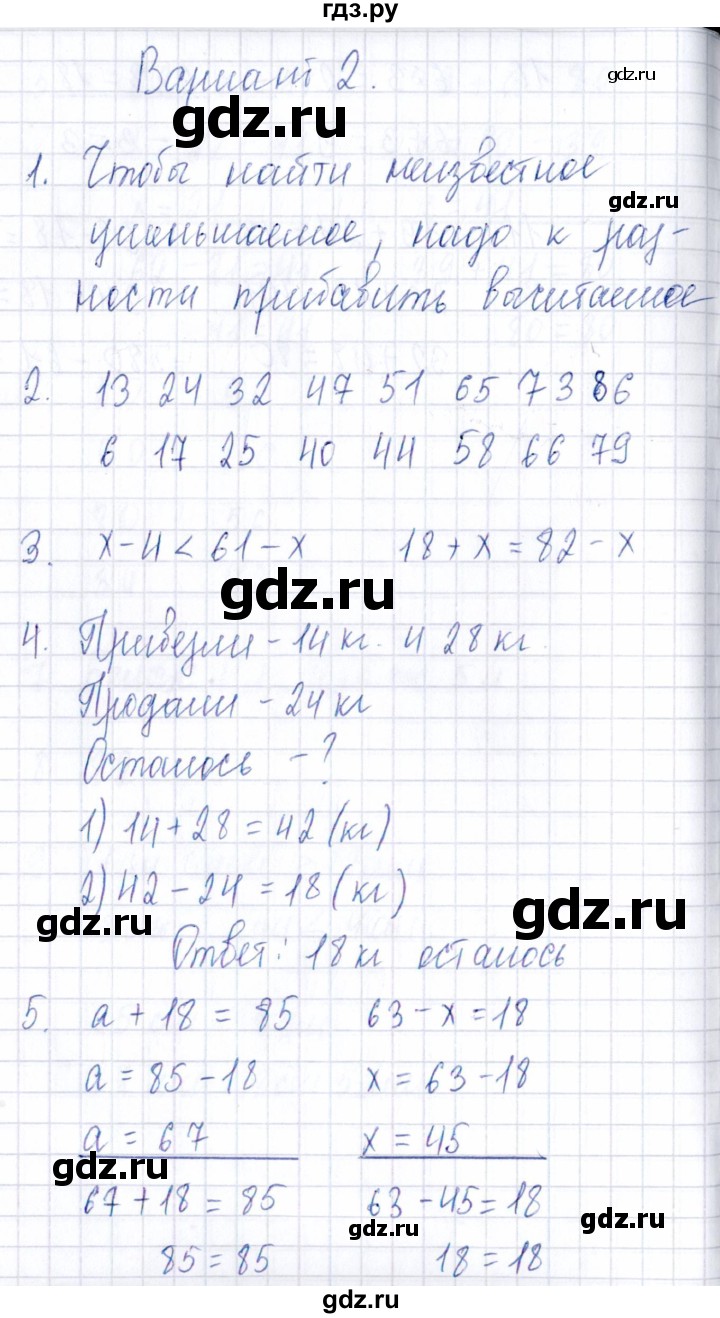 гдз.ру
gdz.ru
Вариант 2.
gdz.ru
1. Чтобы найти неизвестное
gdz.ru
уменьшаемое, надо к раз-
ности прибавить вычитаемое
2. 13 24 32 47 51 65 73 86
6 17 25 40 44 58 66 79
3. x-4<61-x 18+x=82-x
gdz.ru
4. Привезли - 14 кг. и 28 кг.
Продали - 24 кг
Осталось - ?
1) 14+28=42 (кг)
2) 42-24=18 (кг)
gdz.ru gdz.ru
Ответ: 18 кг осталось
5. a+18=85 63-x=18
a=85-18 x=63-18
a=67 x=45
gdz.ru
67+18=85 63-45=18
gdz.ru gdz.ru
85=85 18=18
gdz.ru